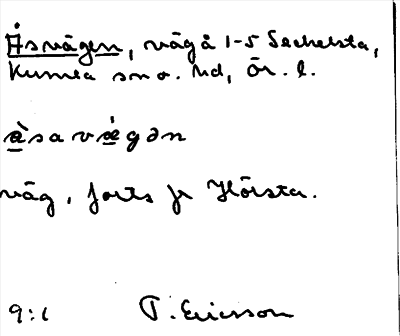 Åsvägen, väg å 1-5 Sechelsta,
Kumla sn o. hd, Ör. l.
àsavǽgən
väg, forts fr Hörsta.
9:1 T. Ericsson